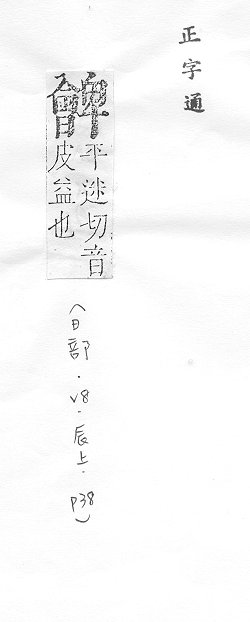 正字通
朇
平迷切音
皮益也
(曰部.v8.辰上.p38)